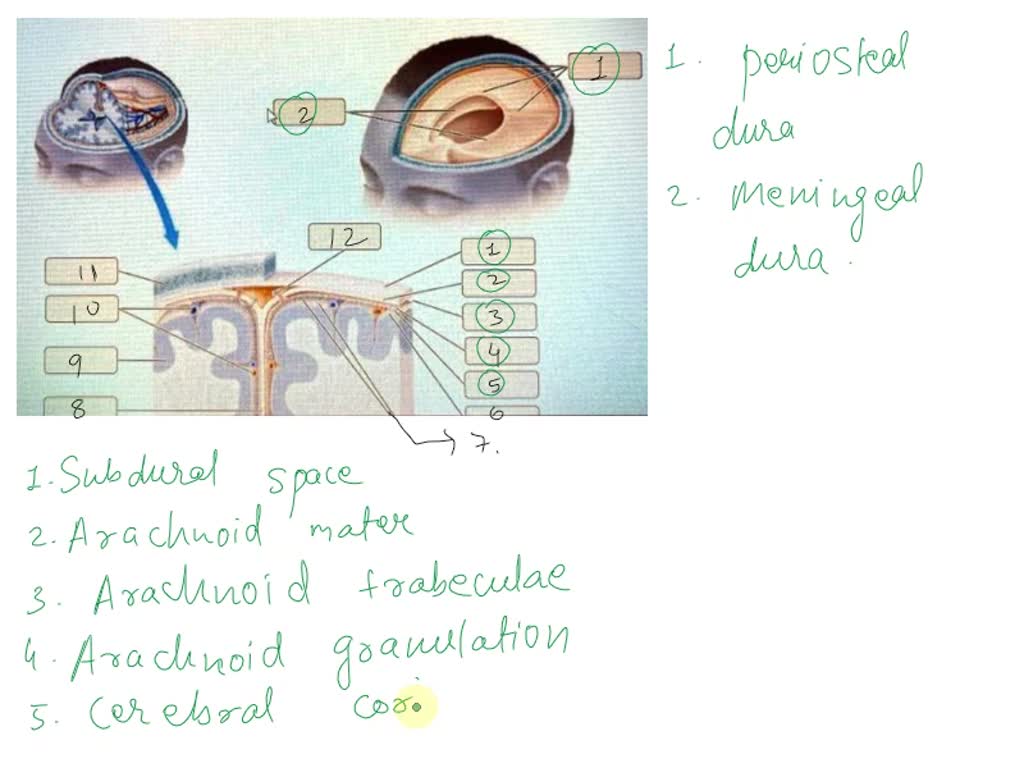 1
2
12
1
11
2
10
3
4
9
5
8
6
7.
1. periosteal
dura
2. Meningeal
dura.
1. Subdural space
2. Arachnoid mater
3. Arachnoid trabeculae
4. Arachnoid granulation
5. Cerebral cor